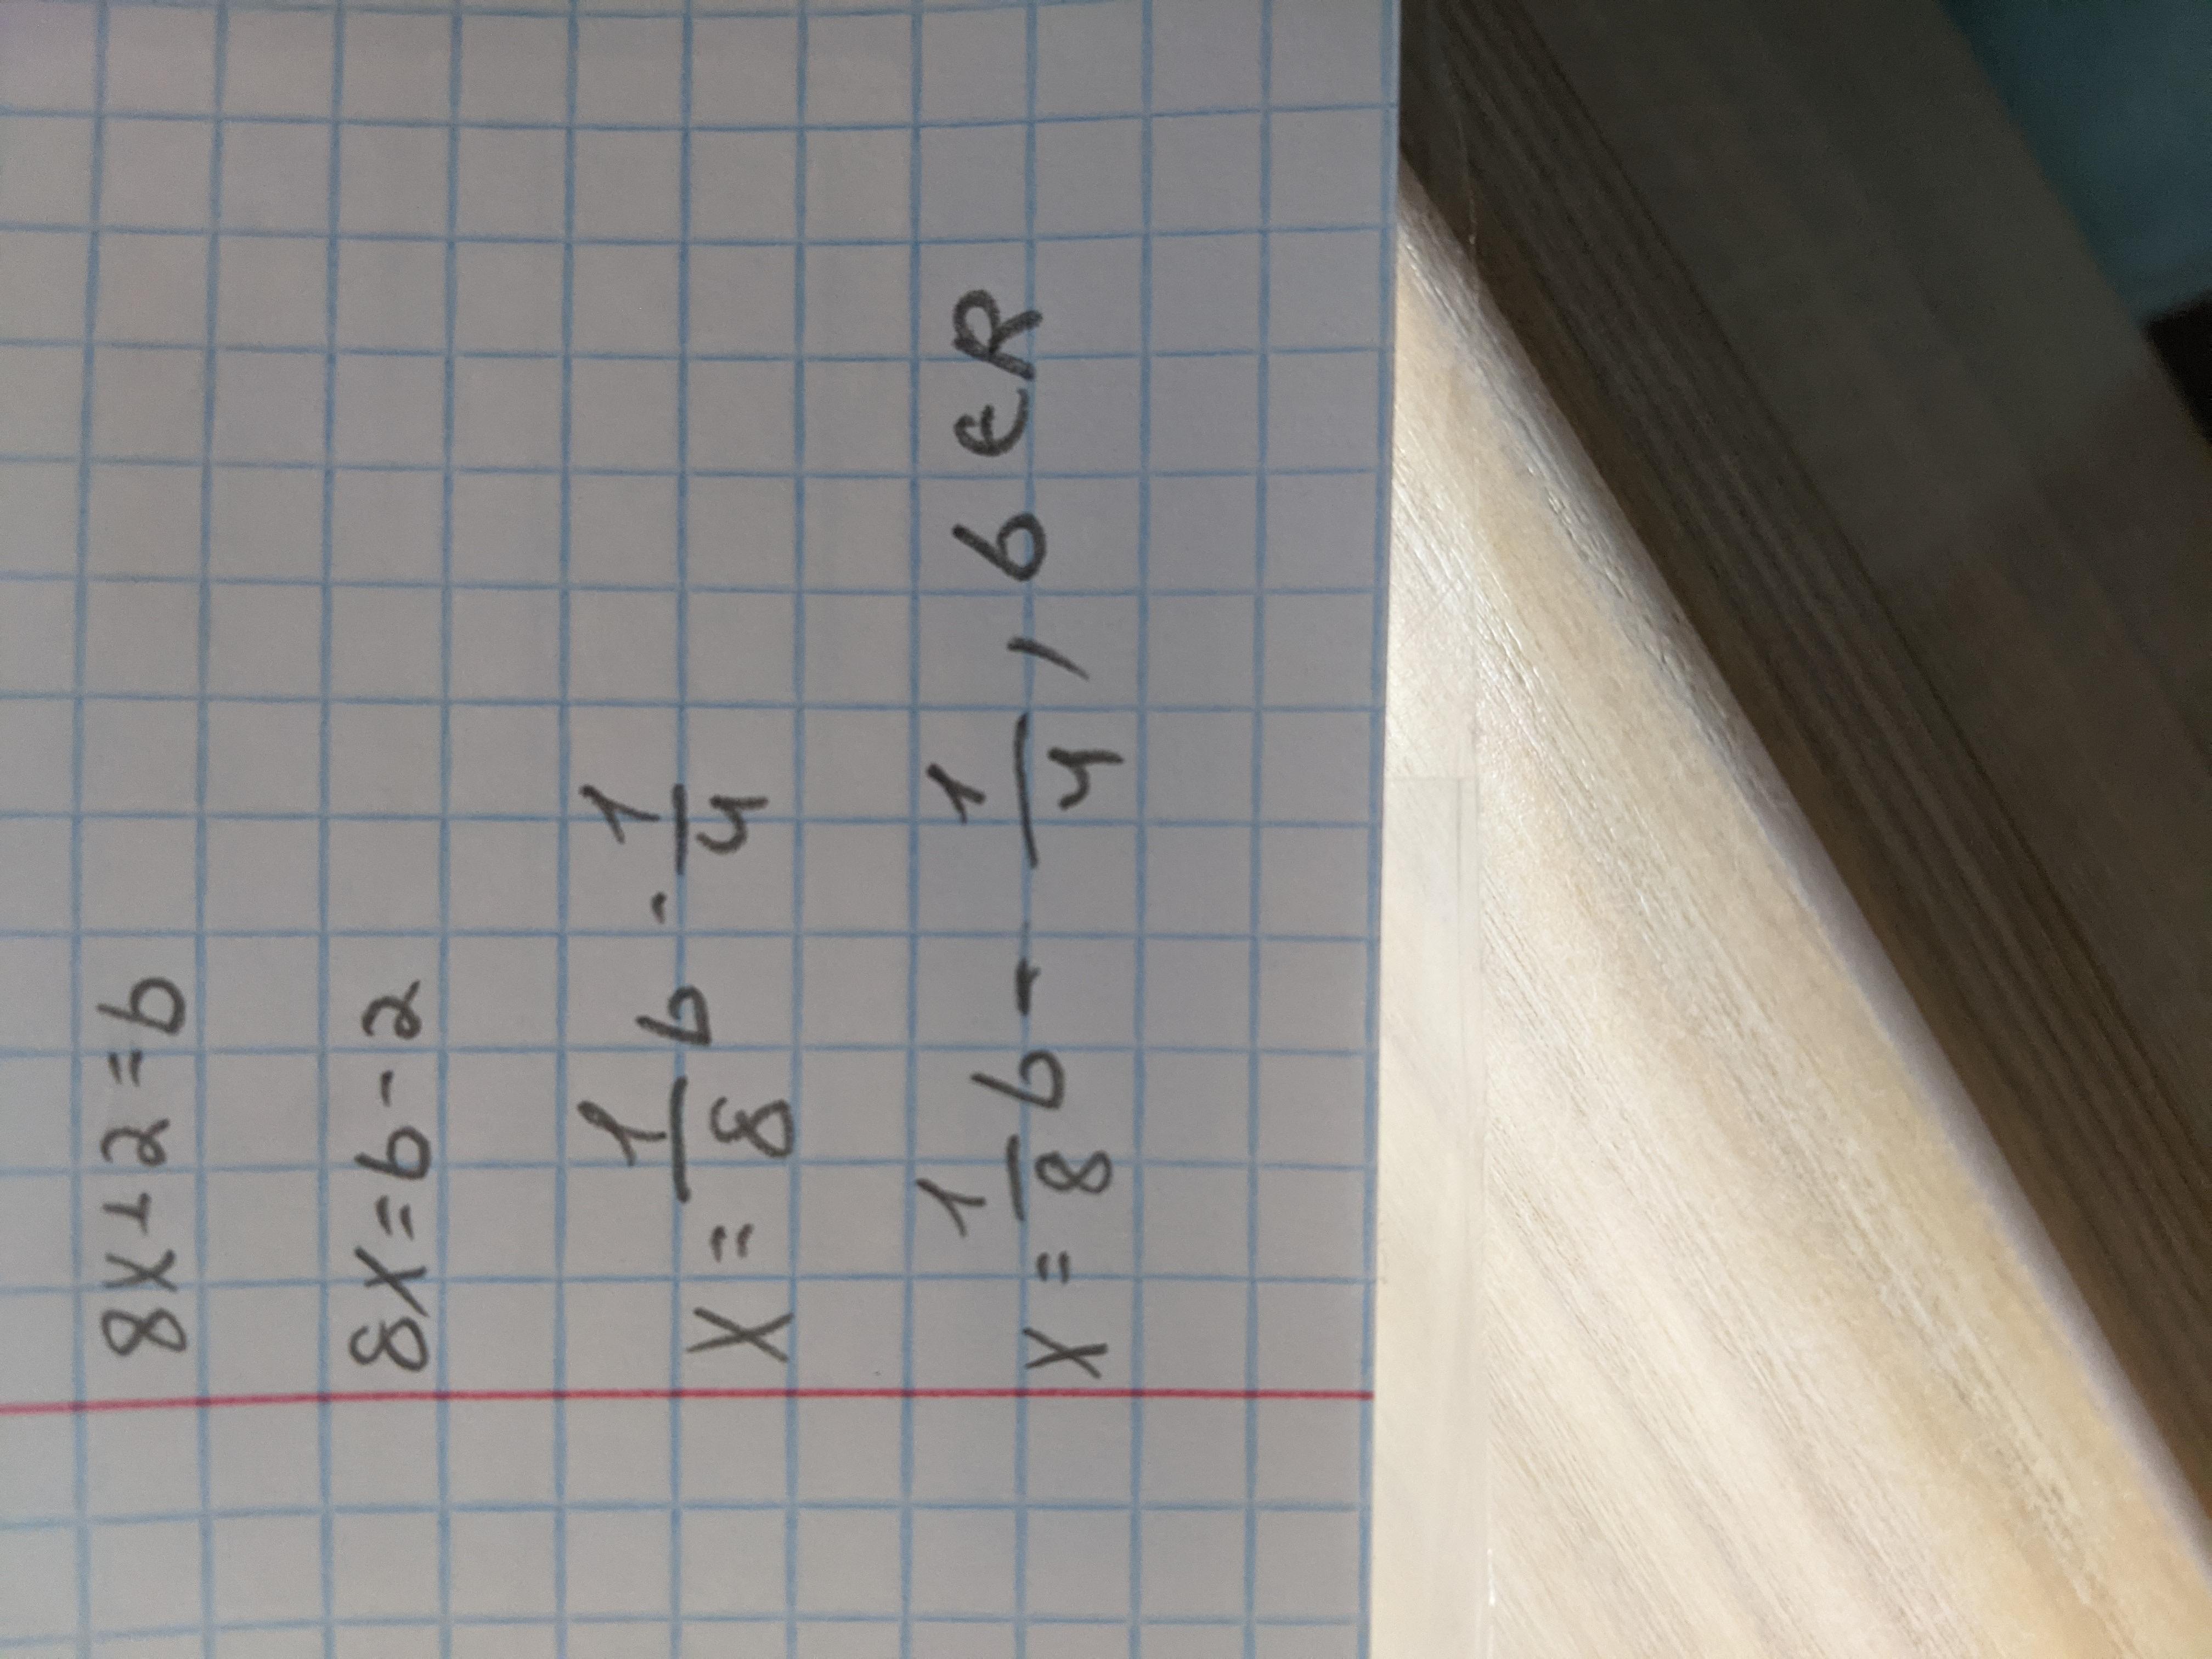 8x+2=b
8x=b-2
x=1/8 b-1/4
x=1/8 b-1/4, b∈R